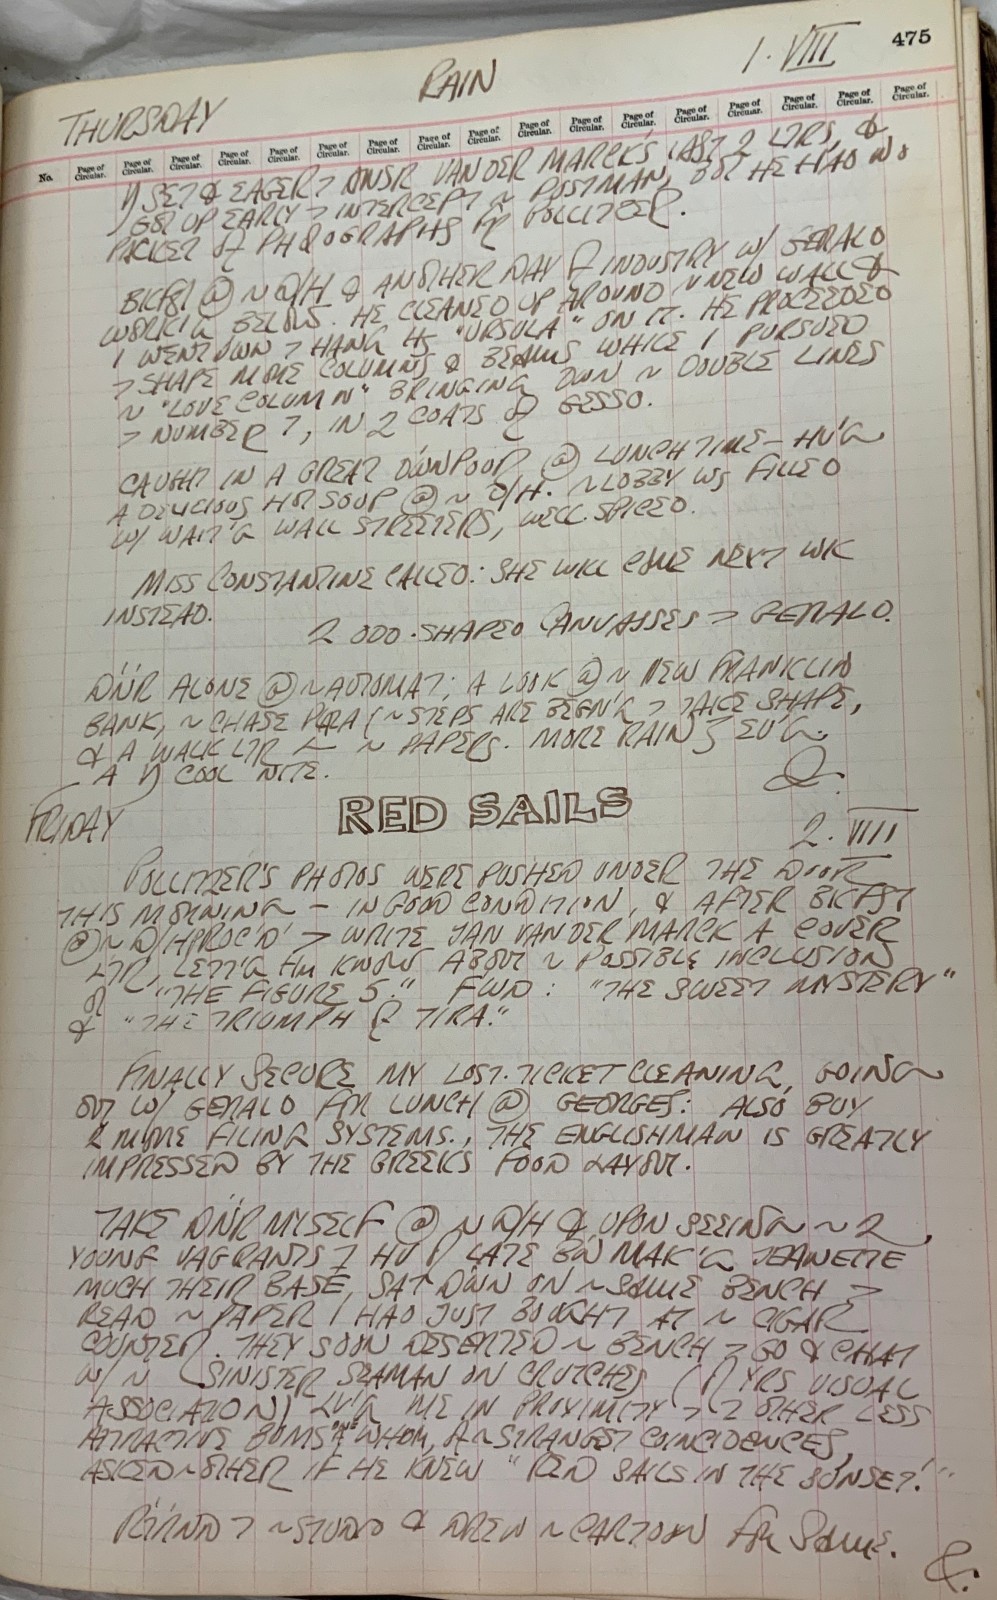 475
THURSDAY RAIN 1. VIII
No. Page of Circular. Page of Circular. Page of Circular. Page of Circular. Page of Circular. Page of Circular. Page of Circular. Page of Circular. Page of Circular. Page of Circular. Page of Circular. Page of Circular. Page of Circular. Page of Circular. Page of Circular. Page of Circular. Page of Circular.
SET & EAGER > ANSR VAN DER MARCK'S LAST 2 LTRS, &
GOT UP EARLY > INTERCEPT ~ POSTMAN, BUT HE HAD NO
PACKET OF PHOTOGRAPHS POLLITZER.
BKFST @ ~ & ANOTHER DAY OF INDUSTRY W/ GERALD
WORKING BELOW. HE CLEANED UP AROUND NEW WALL &
I WENT DOWN > HANG HS "URSULA" ON IT. HE PROCEEDED
> SHAPE MORE COLUMNS & BEAMS WHILE I PURSUED
~ "LOVE COLUMN" BRINGING DOWN ~ DOUBLE LINES
> NUMBER 7, IN 2 COATS OF GESSO.
CAUGHT IN A GREAT DOWNPOUR @ LUNCHTIME – HV'G
A DELICIOUS HOT SOUP @ ~ O/H. ~ LOBBY WS FILLED
W/ WAIT'G WALL STREETERS, WELL-SPICED.
MISS CONSTANTINE CALLED: SHE WILL COME NEXT WK
INSTEAD.
2 ODD-SHAPED CANVASSES > GERALD.
DN'R ALONE @ ~ AUTOMAT; A LOOK @ ~ NEW FRANKLIN
BANK, ~ CHASE PLAZA (~ STEPS ARE BEGN'G > TAKE SHAPE,
& A WALK LTR ~ PAPERS. MORE RAIN EV'G.
A COOL NITE.
FRIDAY RED SAILS 2. VIII
POLLITZER'S PHOTOS WERE PUSHED UNDER THE DOOR
THIS MORNING – IN GOOD CONDITION, & AFTER BKFST
@ ~ O/H PROC'D > WRITE JAN VAN DER MARCK A COVER
LTR, LETT'G HM KNOW ABOUT ~ POSSIBLE INCLUSION
OF "THE FIGURE 5." FWD: "THE SWEET MYSTERY"
& "THE TRIUMPH OF TIRA."
FINALLY SECURE MY LOST-TICKET CLEANING, GOING
OUT W/ GERALD FOR LUNCH @ GEORGES: ALSO BUY
2 MORE FILING SYSTEMS., THE ENGLISHMAN IS GREATLY
IMPRESSED BY THE GREEK'S FOOD LAYOUT.
TAKE DN'R MYSELF @ ~ O/H & UPON SEEING ~ 2
YOUNG VAGRANTS HV OF LATE BN MAK'G JEANETTE
MUCH THEIR BASE, SAT DOWN ON ~ SAME BENCH >
READ ~ PAPER I HAD JUST BOUGHT AT ~ CIGAR
COUNTER. THEY SOON DESERTED ~ BENCH > GO & CHAT
W/ ~ SINISTER SEAMAN ON CRUTCHES (OF YRS VISUAL
ASSOCIATION) LV'G ME IN PROXIMITY > 2 OTHER LESS
ATTRACTIVE BUMS WHOM, ~ STRANGEST COINCIDENCES,
ASKED ~ OTHER IF HE KNEW "RED SAILS IN THE SUNSET!"
RT'RND > ~ STUDIO & DREW ~ CARTOON FOR SAME.